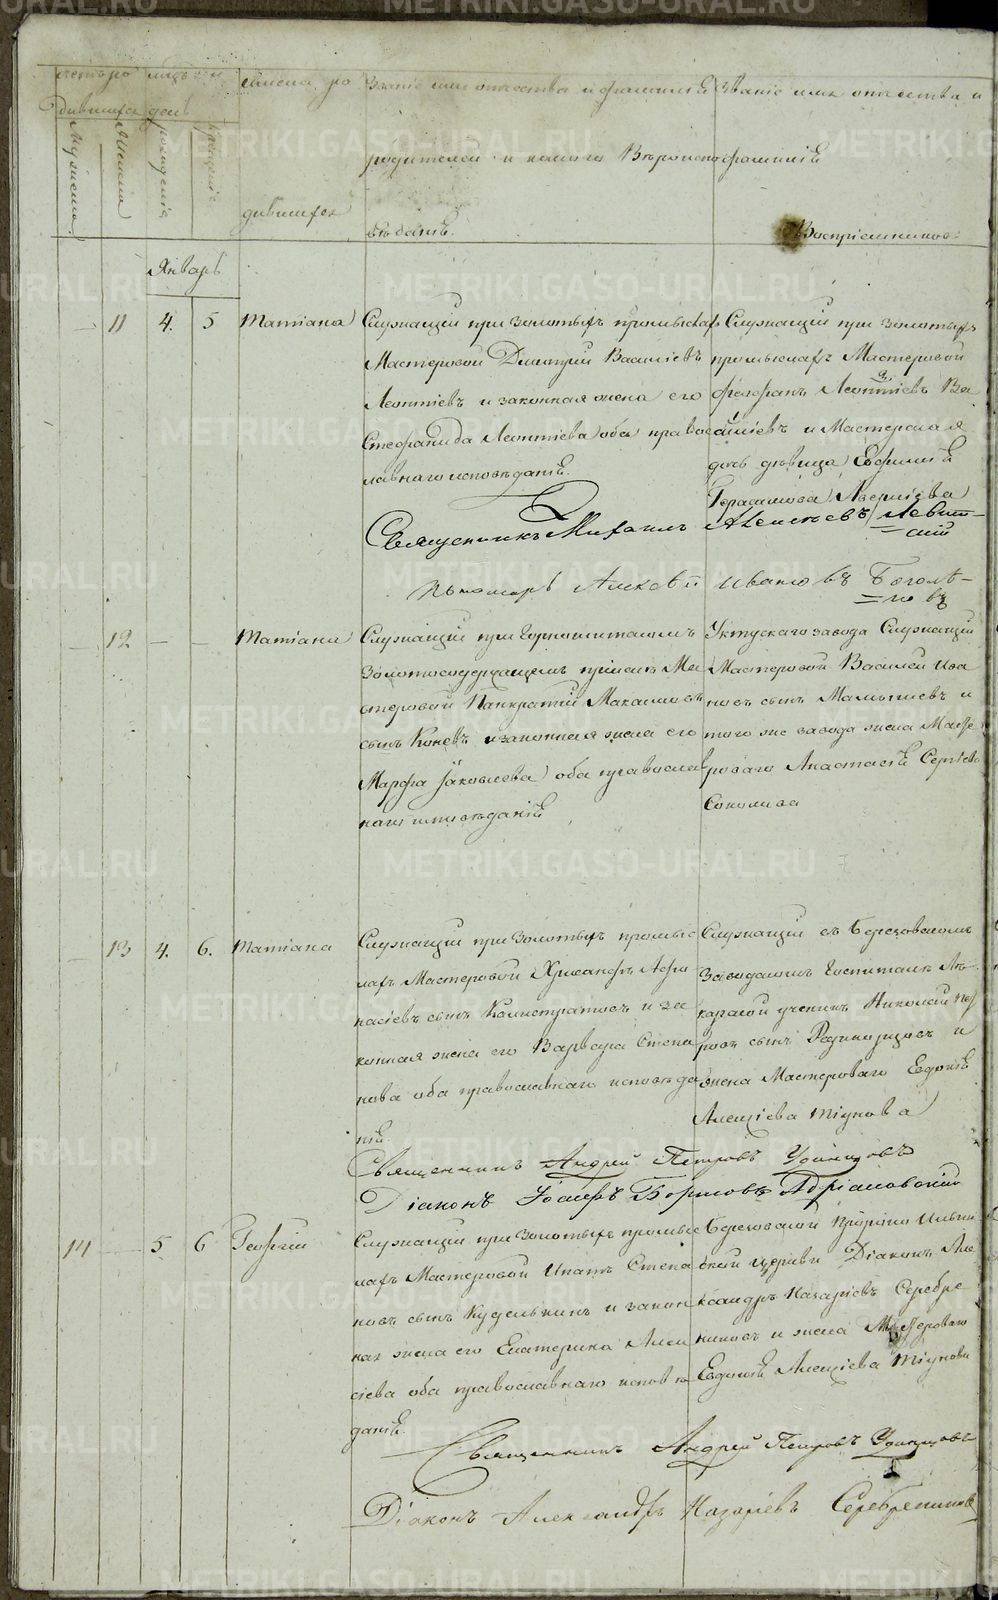 METRIKI.GASO-URAL.RU
Имена ро
дившихся
Званіе имя отчества и фамилія
родителей и какого Вѣроиспо
вѣданія.
Званіе имя отчества и
фамилія
Воспріемниковъ
Мужеска
Женска
рожденія
крещенія
Январь
11 4. 5 Татіана
Служащій при Золотыхъ промыслахъ
Мастеровой Димитрій Васильевъ
Леонтіевъ и законная жена его
Стефанида Леонтіева оба правос
лавнаго исповѣданія.
Служащій при Золотыхъ
промыслахъ Мастеровой
Феофанъ Леонтіевъ Ва
и Мастерская
дочь дѣвица Евфимія
Герасимова
Священникъ Михаилъ Алексѣевъ Левит=
=скій
Пономарь Алексѣй Ивановъ Боголѣ=
=повъ
12 — Татіана
Служащій при Горнощитскомъ
Золотосодержащемъ пріискѣ Ма
стеровой Панкратій Максимовъ
сынъ Коневъ и законная жена его
Марфа Яковлева оба православ
наго исповѣданія
Уктускаго завода Служащій
Мастеровой Василей Ива
новъ сынъ и
того же завода жена Масте
роваго Анастасія Сергѣева
Соколова
13 4. 6. Татіана
Служащій при Золотыхъ промыс
лахъ Мастеровой Хрисанфъ Афа
насіевъ сынъ Калистратовъ и за
конная жена его Варвара Степа
нова оба православнаго исповѣда
нія.
Служащій въ Березовскомъ
Заводскомъ Госпиталѣ Лѣ
карской ученикъ Николай Пет
ровъ сынъ и
жена Мастероваго Евдокія
Алексіева Тіунова
Священникъ Андрей Петровъ Удинцовъ
Діаконъ Іосифъ Борисовъ Адріановскій
14 — 5 6 Георгій
Служащій при Золотыхъ промыс
лахъ Мастеровой Ипатъ Степа
новъ сынъ Куделькинъ и закон
ная жена его Екатерина Алек
сіева оба православнаго исповѣ
данія.
Березовской Пророко Ильин
ской церкви Діаконъ Але
ксандръ Назаріевъ Серебре
никовъ и жена Мастероваго
Евдокія Алексіева Тіунова
Священникъ Андрей Петровъ Удинцовъ
Діаконъ Александръ Назаріевъ Серебрениковъ